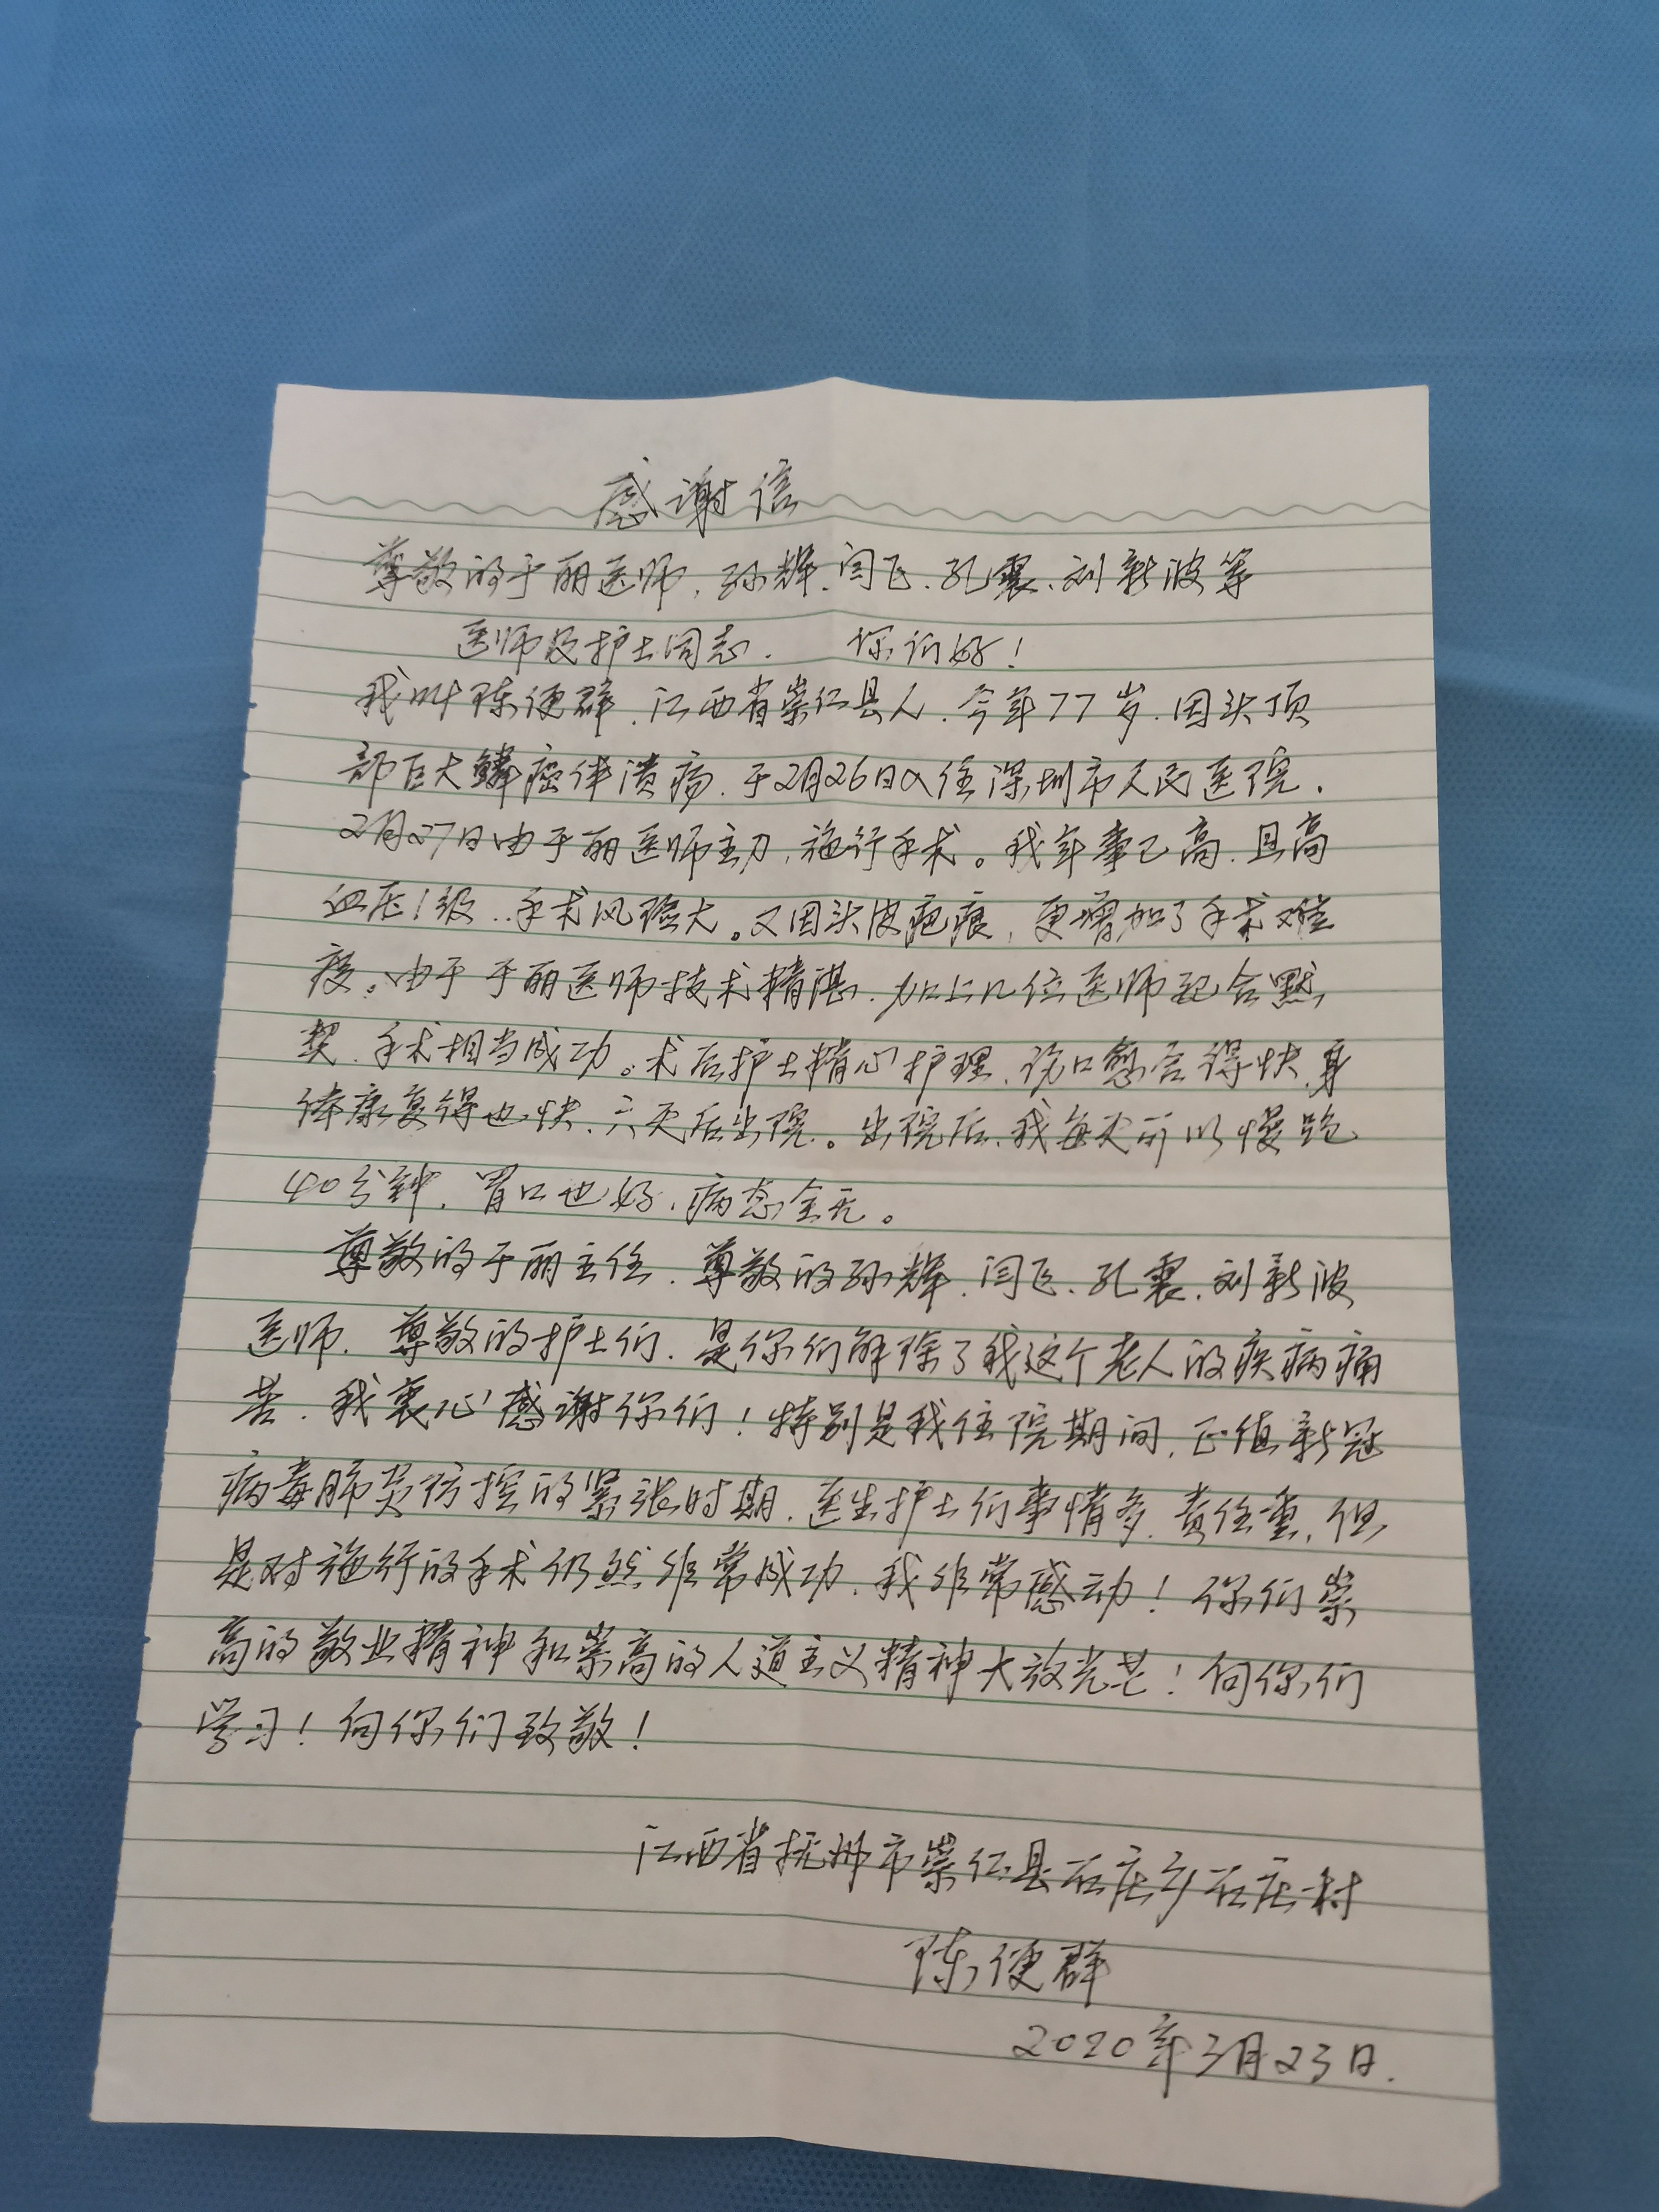 感谢信
尊敬的于丽医师、孙辉、闫飞、孔霞、刘新波等
医师及护士同志. 你们好!
我叫陈便群、江西省崇仁县人、今年77岁、因头顶
部巨大鳞癌伴溃疡、于2月26日入住深圳市人民医院.
2月27日由于丽医师主刀、施行手术。我年事已高、且高
血压1级、手术风险大。又因头皮疤痕、更增加了手术难
度。由于于丽医师技术精湛、加上几位医师配合默
契、手术相当成功。术后护士精心护理、伤口愈合得快、身
体康复得也快、六天后出院。出院后、我每天可以慢跑
40分钟、胃口也好、病态全无。
尊敬的于丽主任、尊敬的孙辉、闫飞、孔霞、刘新波
医师、尊敬的护士们、是你们解除了我这个老人的疾病痛
苦、我衷心感谢你们!特别是我住院期间、正值新冠
病毒肺炎防控的紧张时期、医生护士们事情多、责任重、但
是对施行的手术仍然非常成功、我非常感动!你们崇
高的敬业精神和崇高的人道主义精神大放光芒!向你们
学习!向你们致敬!
江西省抚州市崇仁县石庄乡石庄村
陈便群
2020年3月23日.